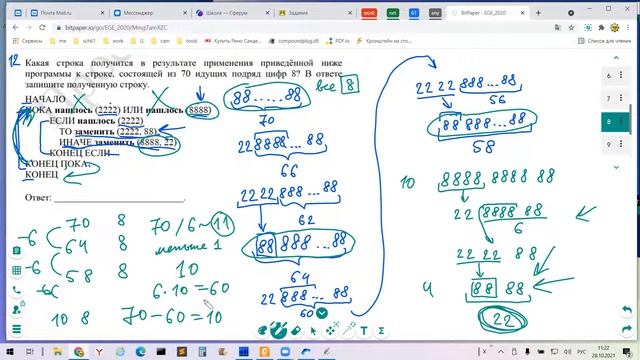 Почта Mail.ru
Мессенджер
Школа — Сферум
Задания
work
net
61
any
BitPaper.io - EGE_2020
bitpaper.io/go/EGE_2020/Mmg7amXZC
Сервисы
sch61
код
ИКТ
комп
ОГЭ
ЕГЭ
Курсы
Купить Рено Санде...
compoundplug.sf
Кронштейн на сто...
Список для чтения
12 Какая строка получится в результате применения приведённой ниже
программы к строке, состоящей из 70 идущих подряд цифр 8? В ответе
запишите полученную строку.
НАЧАЛО
ПОКА нашлось (2222) ИЛИ нашлось (8888)
ЕСЛИ нашлось (2222)
ТО заменить (2222, 88)
ИНАЧЕ заменить (8888, 22)
КОНЕЦ ЕСЛИ
КОНЕЦ ПОКА
КОНЕЦ
Ответ:
-6 70 8
-6 64 8
-6 58 8
10 8
70/6 ~ 11
меньше 1
10
6·10=60
70-60=10
88......88 все 8
70
22 8888...88
66
22 22 888...88
62
88 888...88
64
22 888...88
60
22 22 888...88
56
88 888...88
58
10 8888 8888 88
22 8888 88
6
22 22 88
4 88 88
22
6
7
8
9
РУС
11:22
28.10.2021